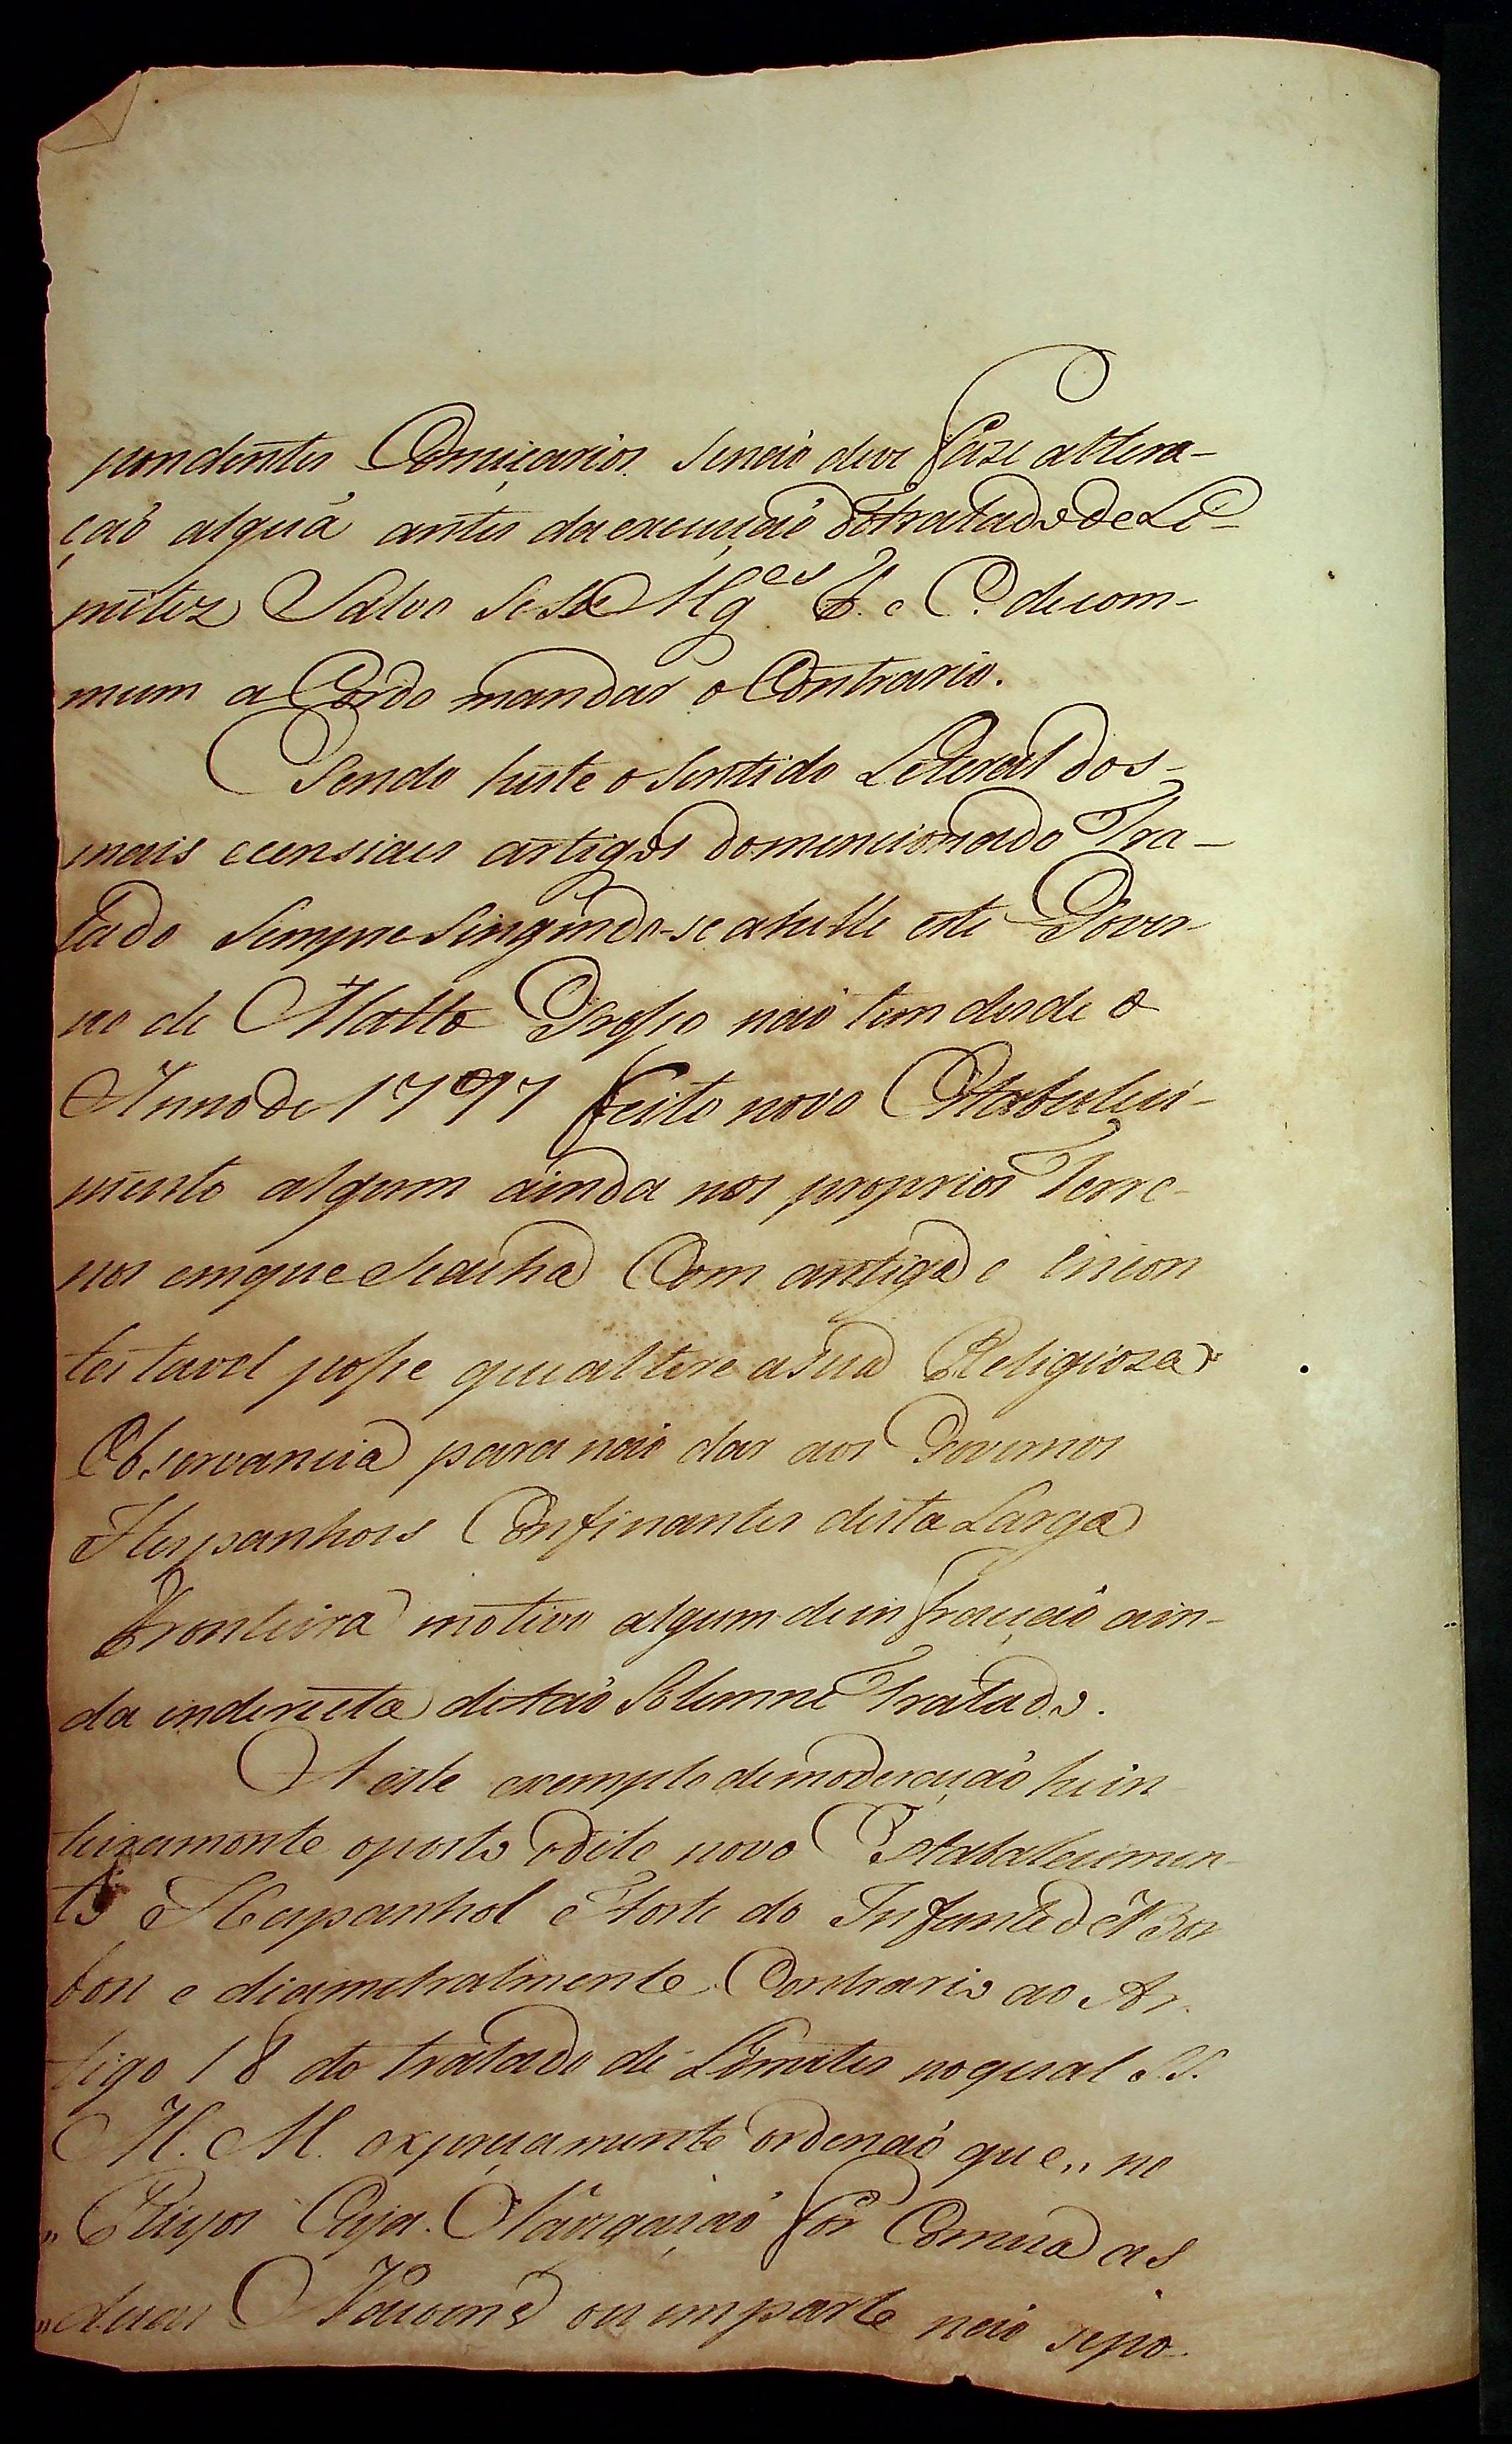 pondentes Comiçarios senaõ deve faze altera-
çaõ alguã antes da execuçaõ do tratado de Li-
mitez Salvo se SS Mg.es F. e C. de com-
mum a Cordo mandar o Contrario.
Sendo heste o sentido Leteral dos-
mais ecensiaes artigos do mencionado Tra-
tado sempre singindo-se a helle este Gover
no de Matto Grosso naõ tem desde o
Anno de 1797 feito novo Estabeleci-
mento algum ainda nos proprios Terre-
nos em que se acha Com antiga e incon
testavel posse que altere a sua Religioza
Observancia para naõ dar aos Governos
Hespanhois Confinantes desta Larga
Fronteira motivo algum de infracçaõ ain-
da indirecta de taõ Solemne Tratado.
A este exemplo de moderaçaõ he in
teiramente oposto o dito novo Estabalecimen-
to Hespanhol e Forte do Infante de Bor
bon e diametralmente Contrario ao Ar.
tigo 18 do tratado de Limites no qual SS.
M. M. expreçamente ordenaõ que,, no
,, Riyos Cuja Navigaçaõ for Comua as
,, duas Naçoens ou em parte naõ se po-